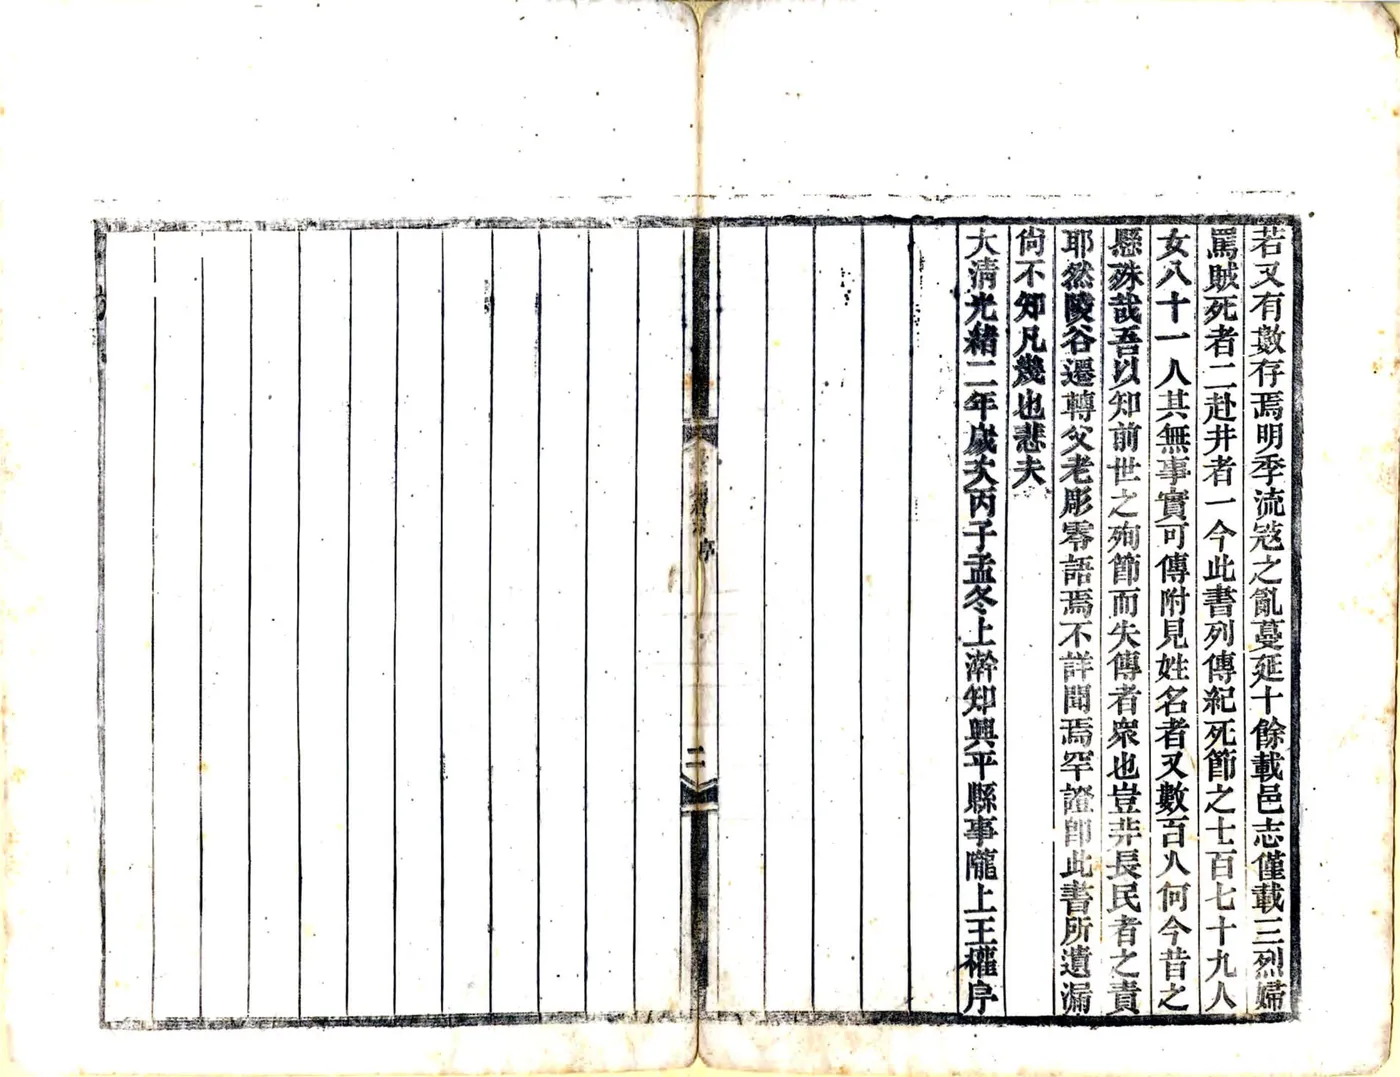 若又有數存焉明季流寇之亂蔓延十餘載邑志僅載三烈婦
罵賊死者二赴井者一今此書列傳紀死節之士百七十九人
女八十一人其無事實可傳附見姓名者又數百人何今昔之
懸殊哉吾以知前世之殉節而失傳者衆也豈非長民者之責
耶然陵谷遷轉父老彫零語焉不詳聞焉罕證卽此書所遺漏
尙不知凡幾也悲夫
大淸光緒二年歲次丙子孟冬上澣知興平縣事隴上王權序
序
二